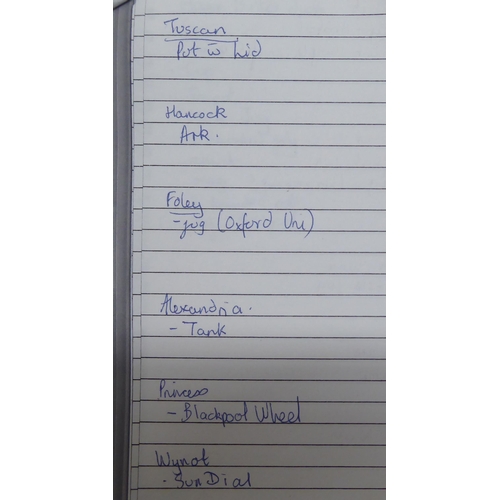 Tuscan
Pot w̄ Lid
Hancock
Ark.
Foley
- jug (Oxford Uni)
Alexandria.
- Tank
Princess
- Blackpool Wheel
Wynot
- Sun Dial